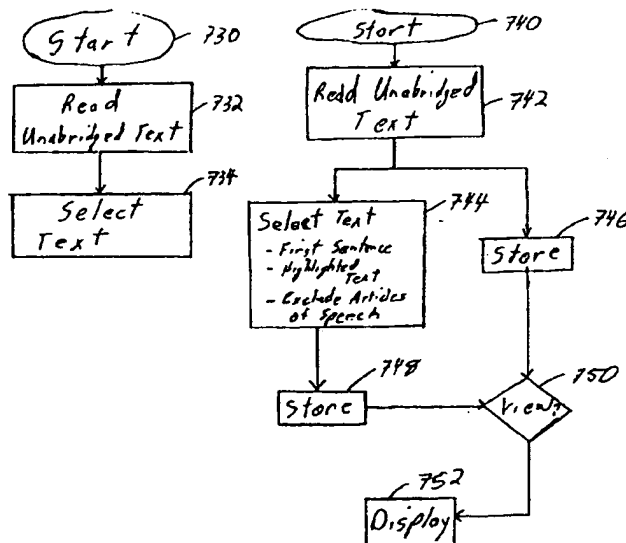 Start
730
Read
Unabridged Text
732
734
Select
Text
Start
740
Read Unabridged
Text
742
744
Select Text
- First Sentence
- Highlighted
Text
- Exclude Articles
of Speech
746
Store
748
Store
750
View?
752
Display